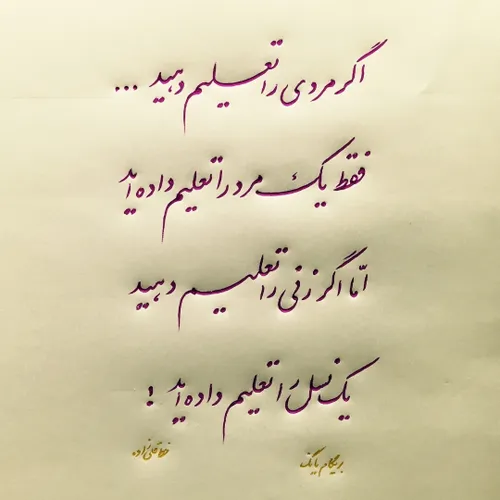 اگر مردی را تعلیم دهید ...
فقط یک مرد را تعلیم داده اید
امّا اگر زنی را تعلیم دهید
یک نسل را تعلیم داده اید !
بریگام یانگ